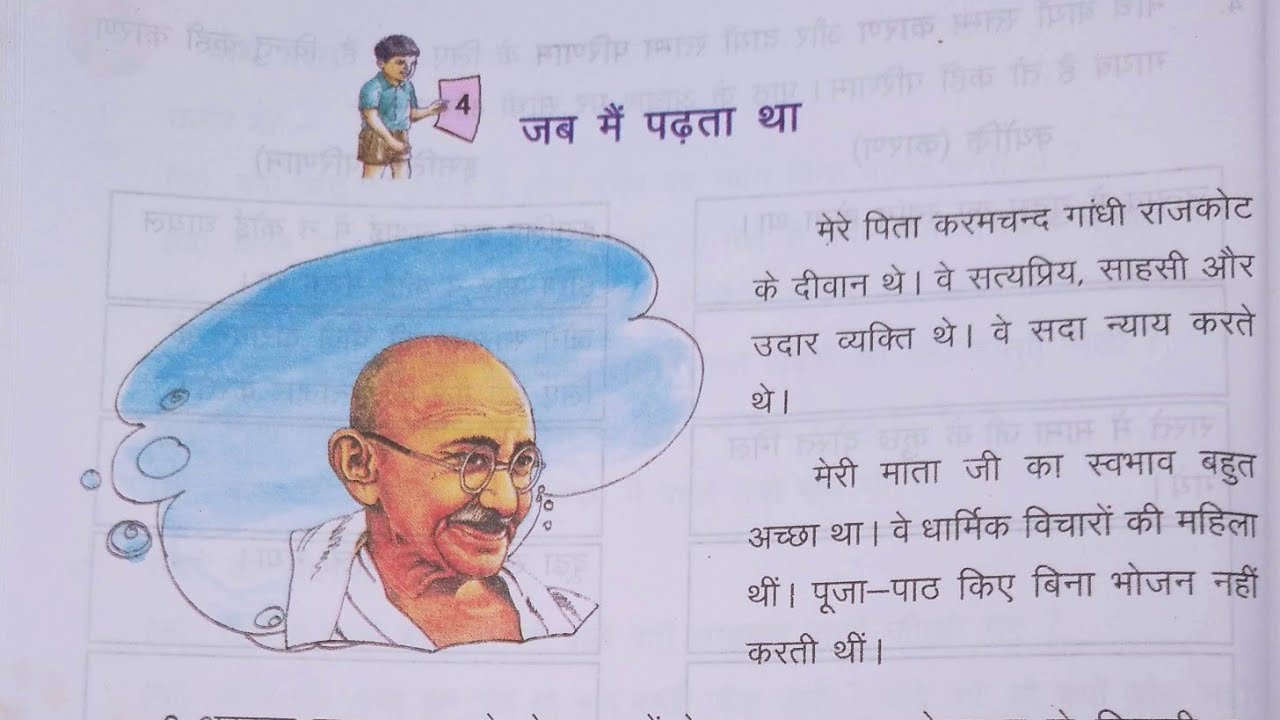 4
जब मैं पढ़ता था
मेरे पिता करमचन्द गांधी राजकोट
के दीवान थे। वे सत्यप्रिय, साहसी और
उदार व्यक्ति थे। वे सदा न्याय करते
थे।
मेरी माता जी का स्वभाव बहुत
अच्छा था। वे धार्मिक विचारों की महिला
थीं। पूजा–पाठ किए बिना भोजन नहीं
करती थीं।